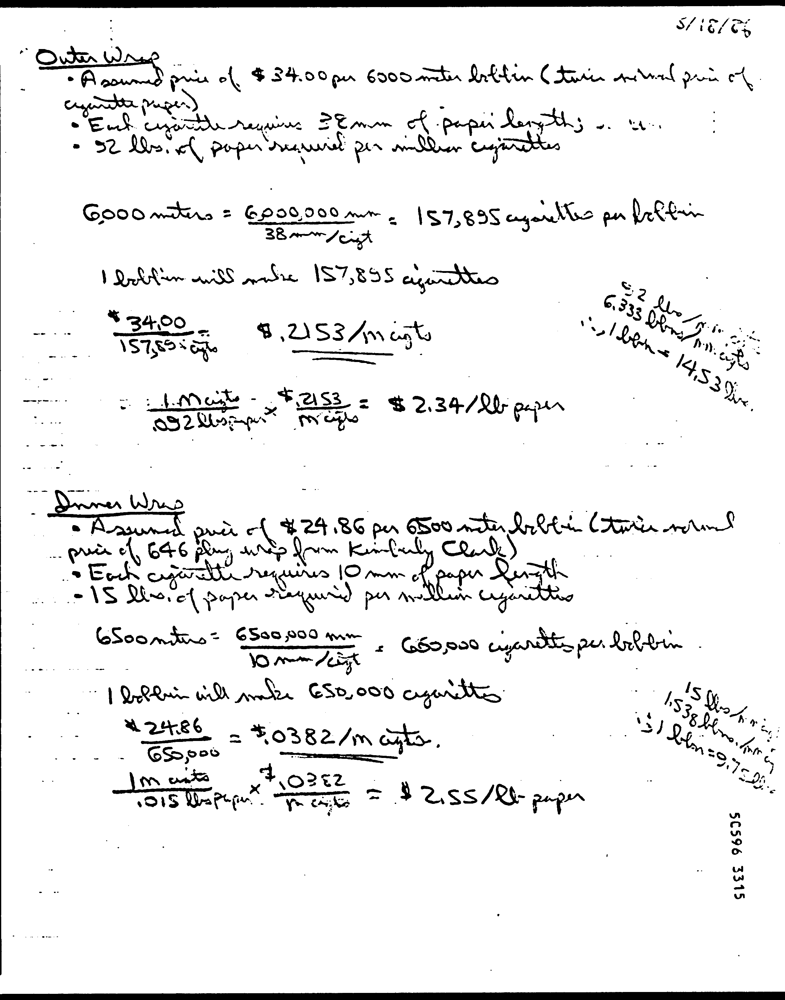 Outer Wrap
• Assumed price of $34.00 per 6000 meter bobbin (twice normal price of
cigarette paper)
• Each cigarette requires 38 mm of paper length;
• 92 lbs. of paper required per million cigarettes
6000 meters = 6,000,000 mm / 38 mm/cigt = 157,895 cigarettes per bobbin
1 bobbin will make 157,895 cigarettes
$34.00 / 157,895 cigts = $.2153/m cigts
92 lbs/m.m. cigts
6.333 bbns/m.m. cigts
∴ 1 bbn = 14.53 lbs.
1 M cigts / .092 lbs paper × $.2153 / m cigts = $2.34/lb paper
Inner Wrap
• Assumed price of $24.86 per 6500 meter bobbin (twice normal
price of 646 plug wrap from Kimberly Clark)
• Each cigarette requires 10 mm of paper length
• 15 lbs. of paper required per million cigarettes
6500 meters = 6500,000 mm / 10 mm/cigt = 650,000 cigarettes per bobbin
1 bobbin will make 650,000 cigarettes
$24.86 / 650,000 = $.0382/m cigts.
15 lbs/m.m. cig
1.538 bbns./m.m. cig
∴ 1 bbn = 9.75 lbs.
1 m cigts / .015 lbs paper × $.0382 / m cigts = $2.55/lb paper
50596 3315